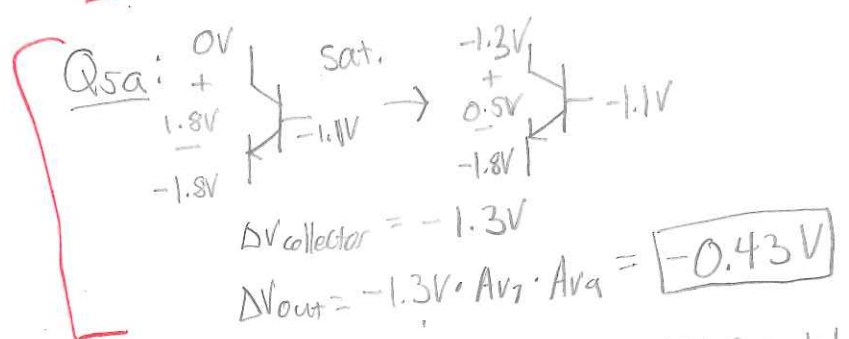 Q5a: 0V sat. -1.3V
+ +
1.8V -1.1V → 0.5V -1.1V
- -
-1.8V -1.8V
ΔVcollector = -1.3V
ΔVout = -1.3V · Av7 · Av9 = -0.43V